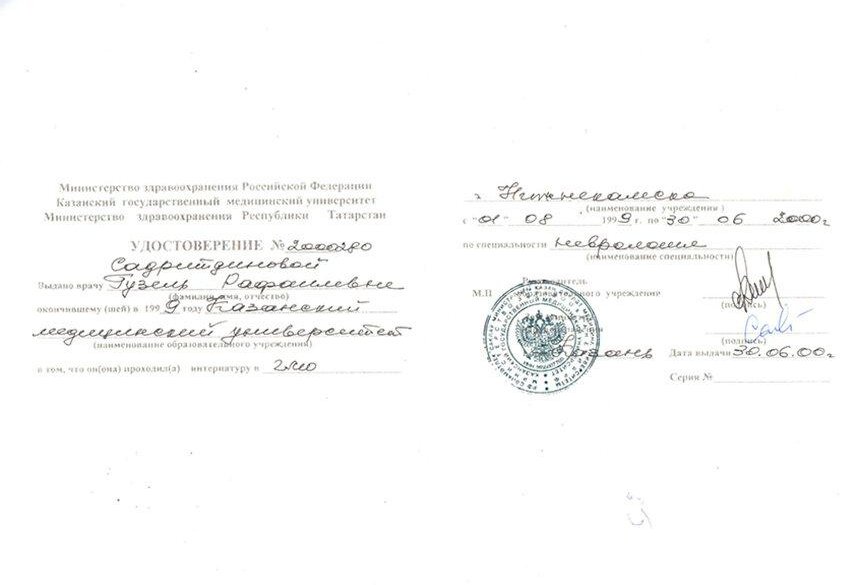 Министерство здравоохранения Российской Федерации
Казанский государственный медицинский университет
Министерство здравоохранения Республики Татарстан
УДОСТОВЕРЕНИЕ № 2000280
Садритдиновой
Выдано врачу Гузель Рафаиловне
(фамилия, имя, отчество)
окончившему (шей) в 1999 году Казанский
медицинский университет
(наименование образовательного учреждения)
в том, что он(ома) проходил(а) интернатуру в
г. Нижнекамска
(наименование учреждения)
с "01" 08 1999 г. по "30" 06 2000г
по специальности неврология
(наименование специальности)
Руководитель
М.П учреждения
(подпись)
Казань
(подпись)
Дата выдачи 30.06.00г
Серия №